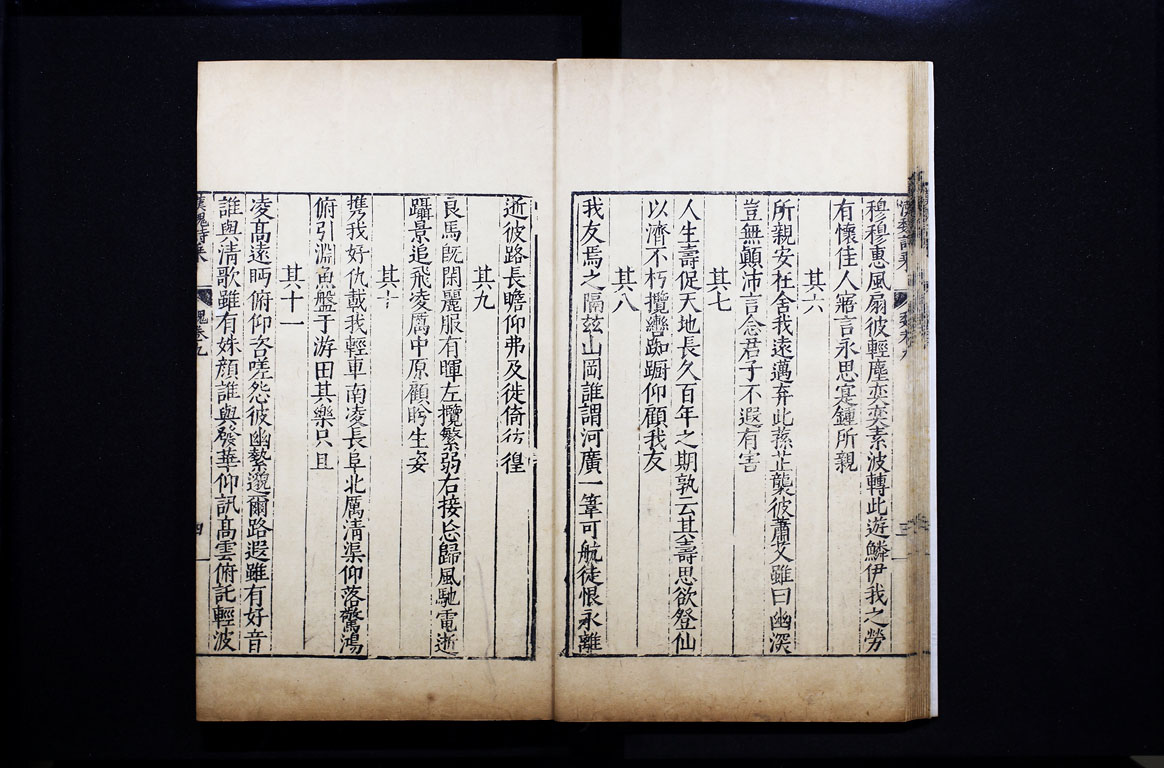 穆穆惠風扇彼輕塵奕奕素波轉此遊鱗伊我之勞
有懷佳人寤言永思寔鍾所親
其六
所親安在舍我遠邁弃此蓀芷襲彼蕭艾雖曰幽深
豈無顛沛言念君子不遐有害
其七
人生壽促天地長久百年之期孰云其壽思欲登仙
以濟不朽攬轡踟蹰仰顧我友
其八
我友焉之隔兹山岡誰謂河廣一葦可航徒恨永離
逝彼路長瞻仰弗及徙倚彷徨
其九
良馬旣閑麗服有暉左攬繁弱右接忘歸風馳電逝
躡景追飛凌厲中原顧盻生姿
其十
携我好仇載我輕車南凌長阜北厲清渠仰落驚鴻
俯引淵魚盤于游田其樂只且
其十一
凌髙遠眄俯仰咨嗟怨彼幽縶邈爾路遐雖有好音
誰與清歌雖有姝顔誰與發華仰訊髙雲俯託輕波
漢魏詩乘
魏卷九
四